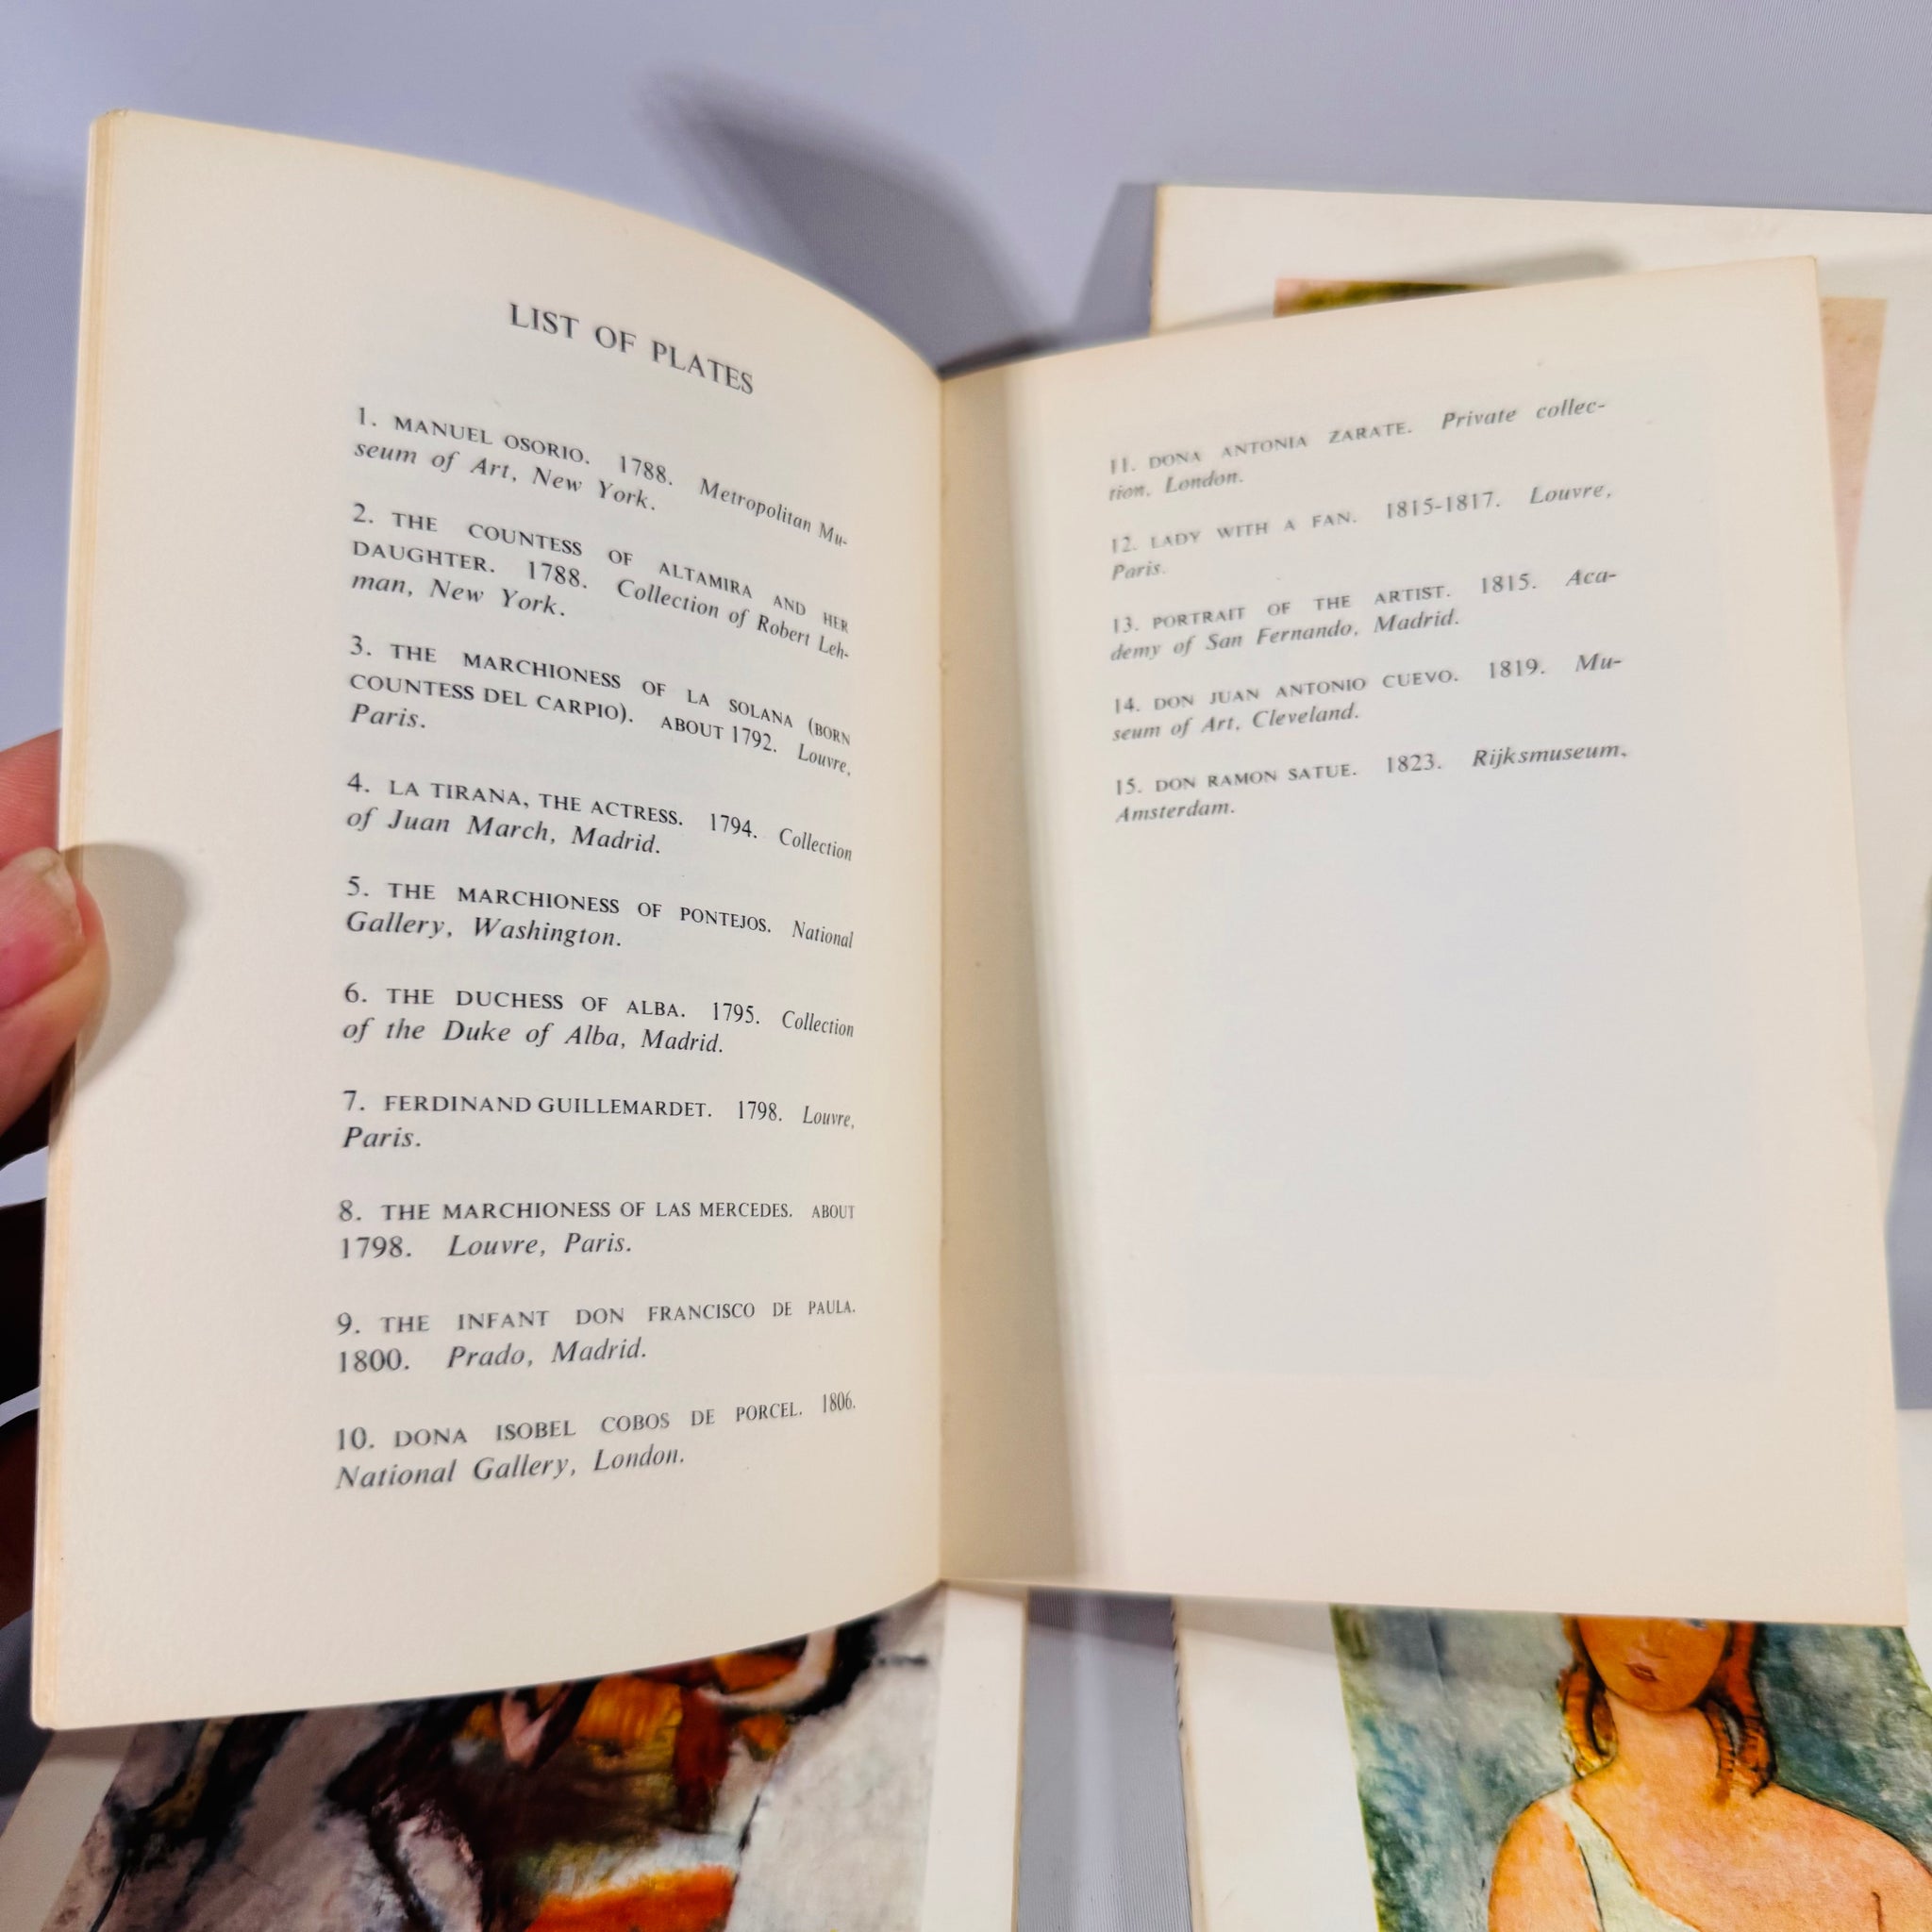 LIST OF PLATES
1. MANUEL OSORIO. 1788. Metropolitan Mu-
seum of Art, New York.
2. THE COUNTESS OF ALTAMIRA AND HER
DAUGHTER. 1788. Collection of Robert Leh-
man, New York.
3. THE MARCHIONESS OF LA SOLANA (BORN
COUNTESS DEL CARPIO). ABOUT 1792. Louvre,
Paris.
4. LA TIRANA, THE ACTRESS. 1794. Collection
of Juan March, Madrid.
5. THE MARCHIONESS OF PONTEJOS. National
Gallery, Washington.
6. THE DUCHESS OF ALBA. 1795. Collection
of the Duke of Alba, Madrid.
7. FERDINAND GUILLEMARDET. 1798. Louvre,
Paris.
8. THE MARCHIONESS OF LAS MERCEDES. ABOUT
1798. Louvre, Paris.
9. THE INFANT DON FRANCISCO DE PAULA.
1800. Prado, Madrid.
10. DONA ISOBEL COBOS DE PORCEL. 1806.
National Gallery, London.
11. DONA ANTONIA ZARATE. Private collec-
tion, London.
12. LADY WITH A FAN. 1815-1817. Louvre,
Paris.
13. PORTRAIT OF THE ARTIST. 1815. Aca-
demy of San Fernando, Madrid.
14. DON JUAN ANTONIO CUEVO. 1819. Mu-
seum of Art, Cleveland.
15. DON RAMON SATUE. 1823. Rijksmuseum,
Amsterdam.